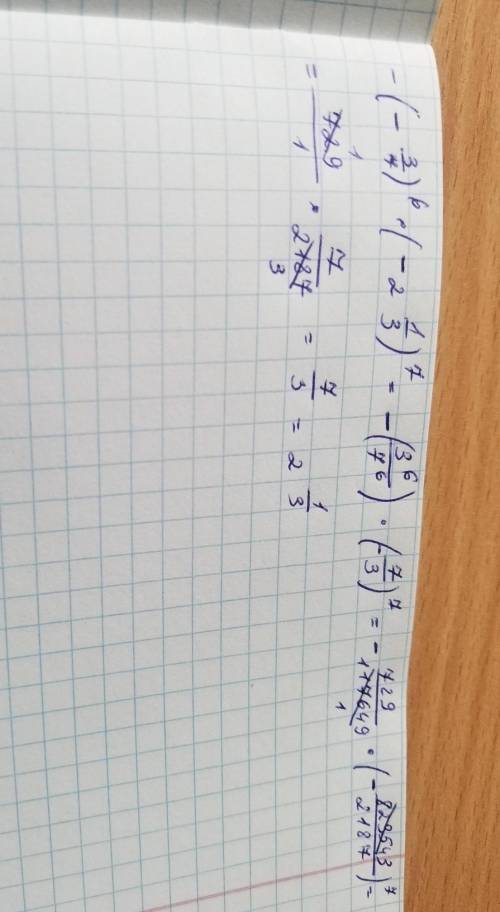 -(-3/7)^6 · (-2 1/3)^7 = -(3^6/7^6) · (-7/3)^7 = -729/117649 1 · (-823543/2187) 7 =
= 729/1 1 · 7/2187 3 = 7/3 = 2 1/3